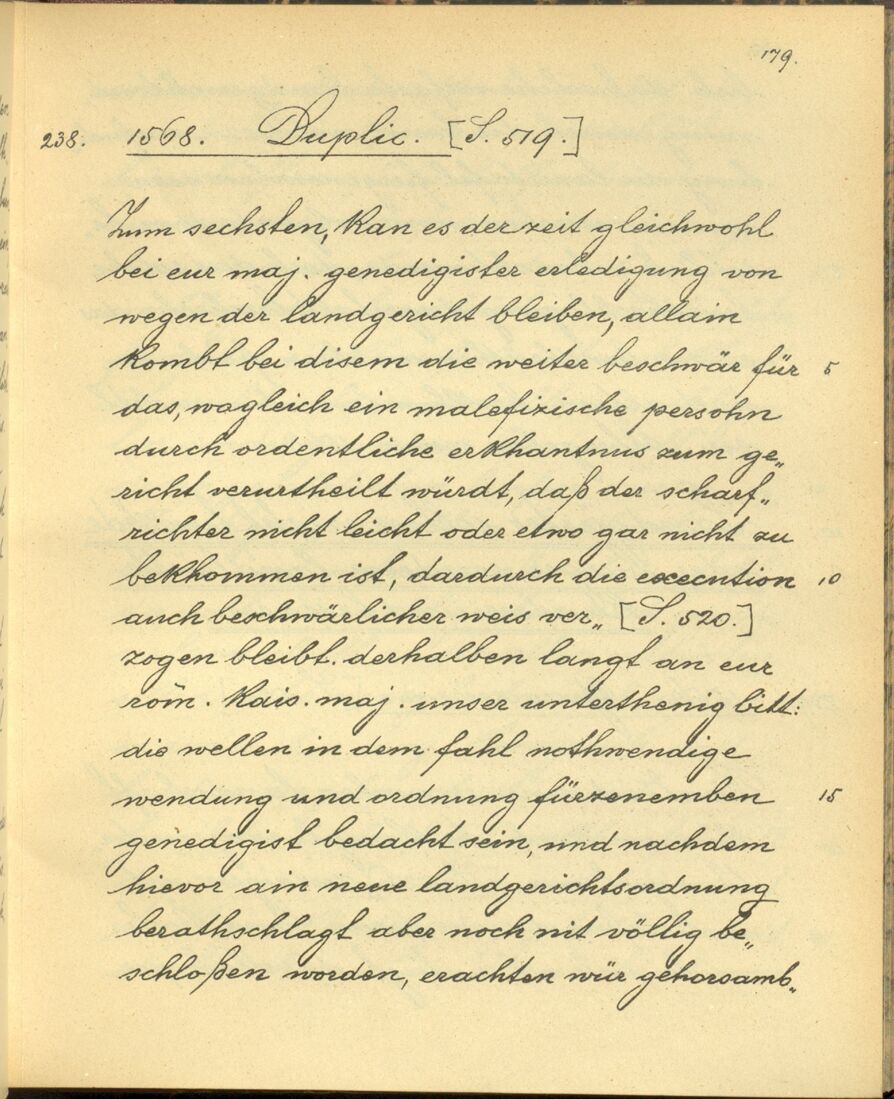 179.
238. 1568. Duplic. [S. 519.]
Zum sechsten, kan es der zeit gleichwohl
bei eur maj. genedigister erledigung von
wegen der landgericht bleiben, allain
kombt bei disem die weiter beschwär für 5
das, wagleich ein malefizische persohn
durch ordentliche erkhantnus zum ge„
richt verurtheilt würdt, daß der scharf„
richter nicht leicht oder etwo gar nicht zu
bekhommen ist, dardurch die execution 10
auch beschwärlicher weis ver„ [S. 520.]
zogen bleibt. derhalben langt an eur
röm. kais. maj. unser unterthenig bitt:
die wellen in dem fahl nothwendige
wendung und ordnung fürzenemben 15
genedigist bedacht sein, und nachdem
hievor ain neue landgerichtsordnung
berathschlagt aber noch nit völlig be„
schloßen worden, erachten wür gehorsamb„